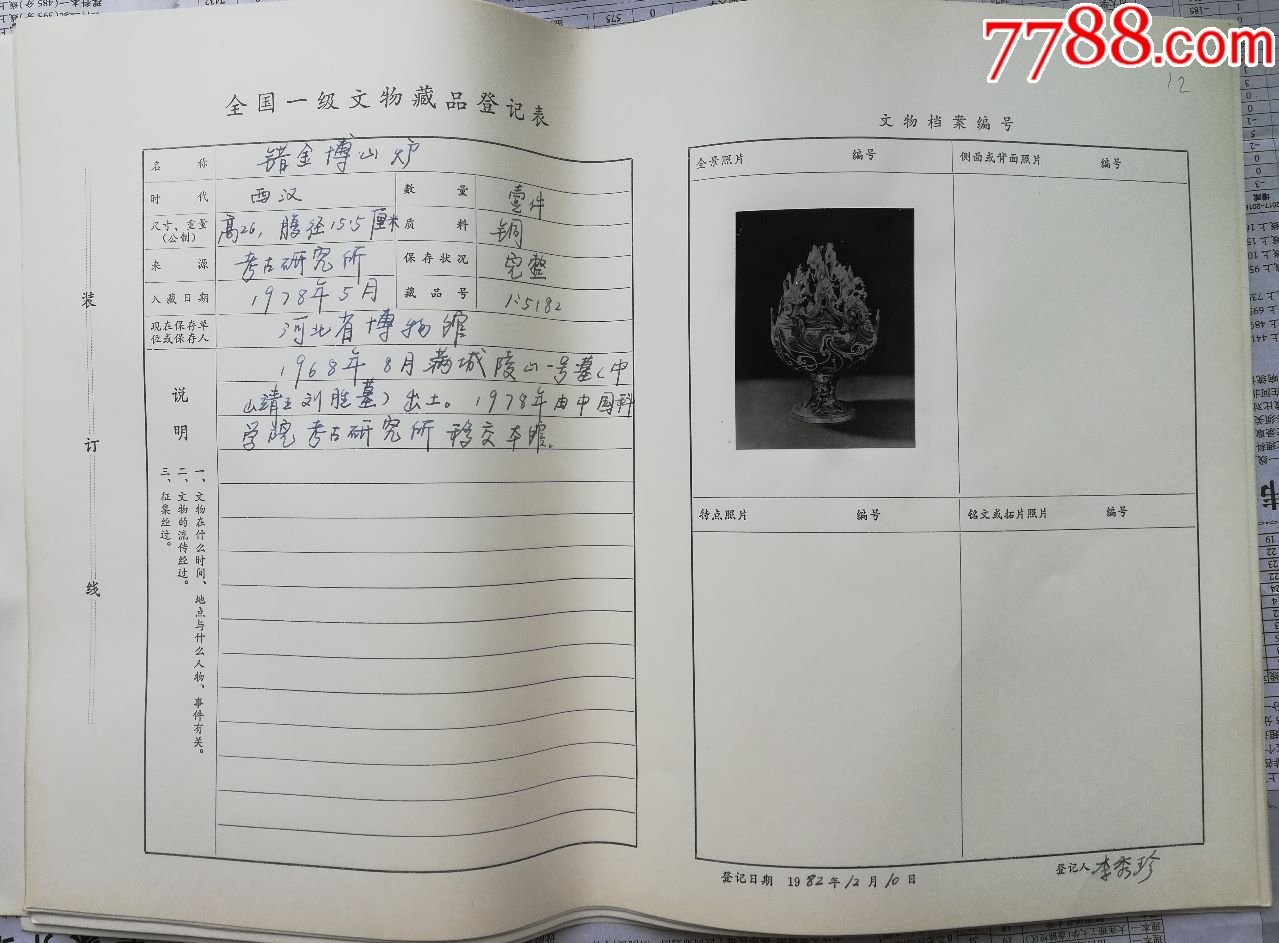 7788.com
12
全国一级文物藏品登记表
名称 错金博山炉
时代 西汉 数量 壹件
尺寸、重量(公制) 高26,腹径15.5厘米 质料 铜
来源 考古研究所 保存状况 完整
入藏日期 1978年5月 藏品号 1:5182
现在保存单位或保存人 河北省博物馆
说明
1968年8月满城陵山一号墓(中
山靖王刘胜墓)出土。1978年由中国科
学院考古研究所移交本馆。
一、文物在什么时间、地点与什么人物、事件有关。
二、文物的流传经过。
三、征集经过。
装
订
线
文物档案编号
全景照片 编号 侧面或背面照片 编号
特点照片 编号 铭文或拓片照片 编号
登记日期 1982年12月10日 登记人 李秀珍